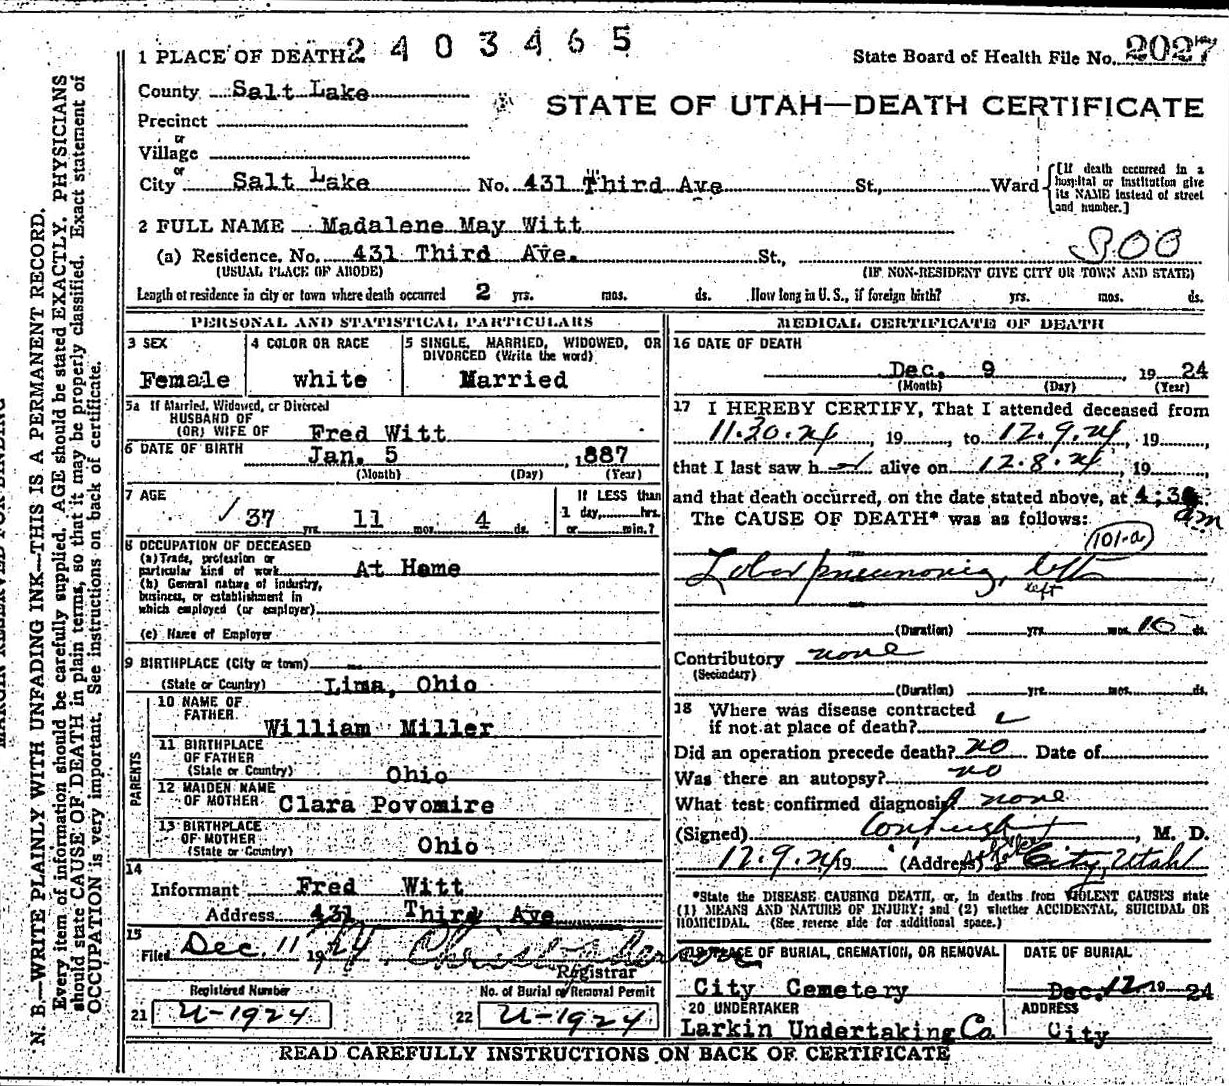 1 PLACE OF DEATH 2 4 0 3 4 6 5 State Board of Health File No. 2027
County Salt Lake
STATE OF UTAH—DEATH CERTIFICATE
Precinct
or
Village
or
City Salt Lake No. 431 Third Ave St., Ward [If death occurred in a hospital or institution give its NAME instead of street and number.]
2 FULL NAME Madalene May Witt
(a) Residence. No. 431 Third Ave. St., 800
(USUAL PLACE OF ABODE) (IF NON-RESIDENT GIVE CITY OR TOWN AND STATE)
Length of residence in city or town where death occurred 2 yrs. mos. ds. How long in U. S., if foreign birth? yrs. mos. ds.
PERSONAL AND STATISTICAL PARTICULARS
3 SEX
Female
4 COLOR OR RACE
white
5 SINGLE, MARRIED, WIDOWED, OR
DIVORCED (Write the word)
Married
5a If Married, Widowed, or Divorced
HUSBAND OF
(OR) WIFE OF Fred Witt
6 DATE OF BIRTH Jan. 5 1887
(Month) (Day) (Year)
7 AGE
37 yrs. 11 mos. 4 ds.
If LESS than
1 day, hrs.
or min.?
8 OCCUPATION OF DECEASED
(a) Trade, profession or
particular kind of work At Home
(b) General nature of industry,
business, or establishment in
which employed (or employer)
(c) Name of Employer
9 BIRTHPLACE (City or town)
(State or Country) Lima, Ohio
PARENTS
10 NAME OF
FATHER William Miller
11 BIRTHPLACE
OF FATHER
(State or Country) Ohio
12 MAIDEN NAME
OF MOTHER Clara Povomire
13 BIRTHPLACE
OF MOTHER
(State or Country) Ohio
14
Informant Fred Witt
Address 431 Third Ave
15
Filed Dec. 11 1924
Registrar
Registered Number No. of Burial or Removal Permit
21 U-1924 22 U-1924
MEDICAL CERTIFICATE OF DEATH
16 DATE OF DEATH
Dec. 9 19 24
(Month) (Day) (Year)
17 I HEREBY CERTIFY, That I attended deceased from
11.30.24, 19 , to 12.9.24, 19 ,
that I last saw h alive on 12.8.24, 19
and that death occurred, on the date stated above, at 4:30 am
The CAUSE OF DEATH* was as follows:
101-a
Lobar pneumonia, left
left
(Duration) yrs. mos. 10 ds.
Contributory none
(Secondary)
(Duration) yrs. mos. ds.
18 Where was disease contracted
if not at place of death?
Did an operation precede death? no Date of
Was there an autopsy? no
What test confirmed diagnosis? none
(Signed) , M. D.
12.9.24 19 (Address) City, Utah
*State the DISEASE CAUSING DEATH, or, in deaths from VIOLENT CAUSES state
(1) MEANS AND NATURE OF INJURY; and (2) whether ACCIDENTAL, SUICIDAL OR
HOMICIDAL. (See reverse side for additional space.)
19 PLACE OF BURIAL, CREMATION, OR REMOVAL
City Cemetery
DATE OF BURIAL
Dec. 12 19 24
20 UNDERTAKER
Larkin Undertaking Co.
ADDRESS
City
READ CAREFULLY INSTRUCTIONS ON BACK OF CERTIFICATE
MARGIN RESERVED FOR BINDING
N. B.—WRITE PLAINLY WITH UNFADING INK—THIS IS A PERMANENT RECORD.
Every item of information should be carefully supplied. AGE should be stated EXACTLY. PHYSICIANS
should state CAUSE OF DEATH in plain terms, so that it may be properly classified. Exact statement of
OCCUPATION is very important. See instructions on back of certificate.